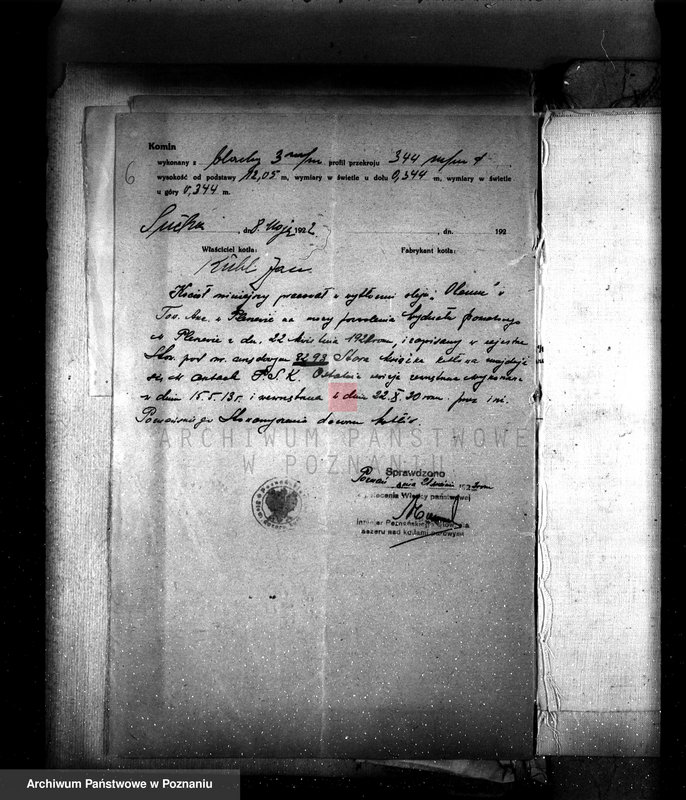 Komin
6
wykonany z blachy 3 m/m profil przekroju 344 m/m
wysokość od podstawy 12,05 m, wymiary w świetle u dołu 0,344 m, wymiary w świetle
u góry 0,344 m.
Sucha, dn. 8 Maja 1922, dn. 192
Właściciel kotła: Fabrykant kotła:
Kühl Jan
Kocioł niniejszy pracował w
Tow. Akc. w Pleszewie na mocy pozwolenia Wydziału Powiatowego
w Pleszewie z dn. 22 kwietnia 1920 rou, i zapisany w rejestrze
Stow. pod nr. 3293 Stara książka kotłowa znajduje
się w aktach P.S.K. Ostatnia rewizja zewnętrzna wykonana
w dniu 15.5.13 r. i wewnętrzna w dniu 22.X.20 rou. prez inż.
Poznańskiego Stowarzyszenia dozoru kotłów
ARCHIWUM PAŃSTWOWE
W POZNANIU
Sprawdzono
Poznań, dnia
z polecenia Władzy państwowej
Inżynier Poznańskiego Stow. dla
dozoru nad kotłami parowymi
Archiwum Państwowe w Poznaniu